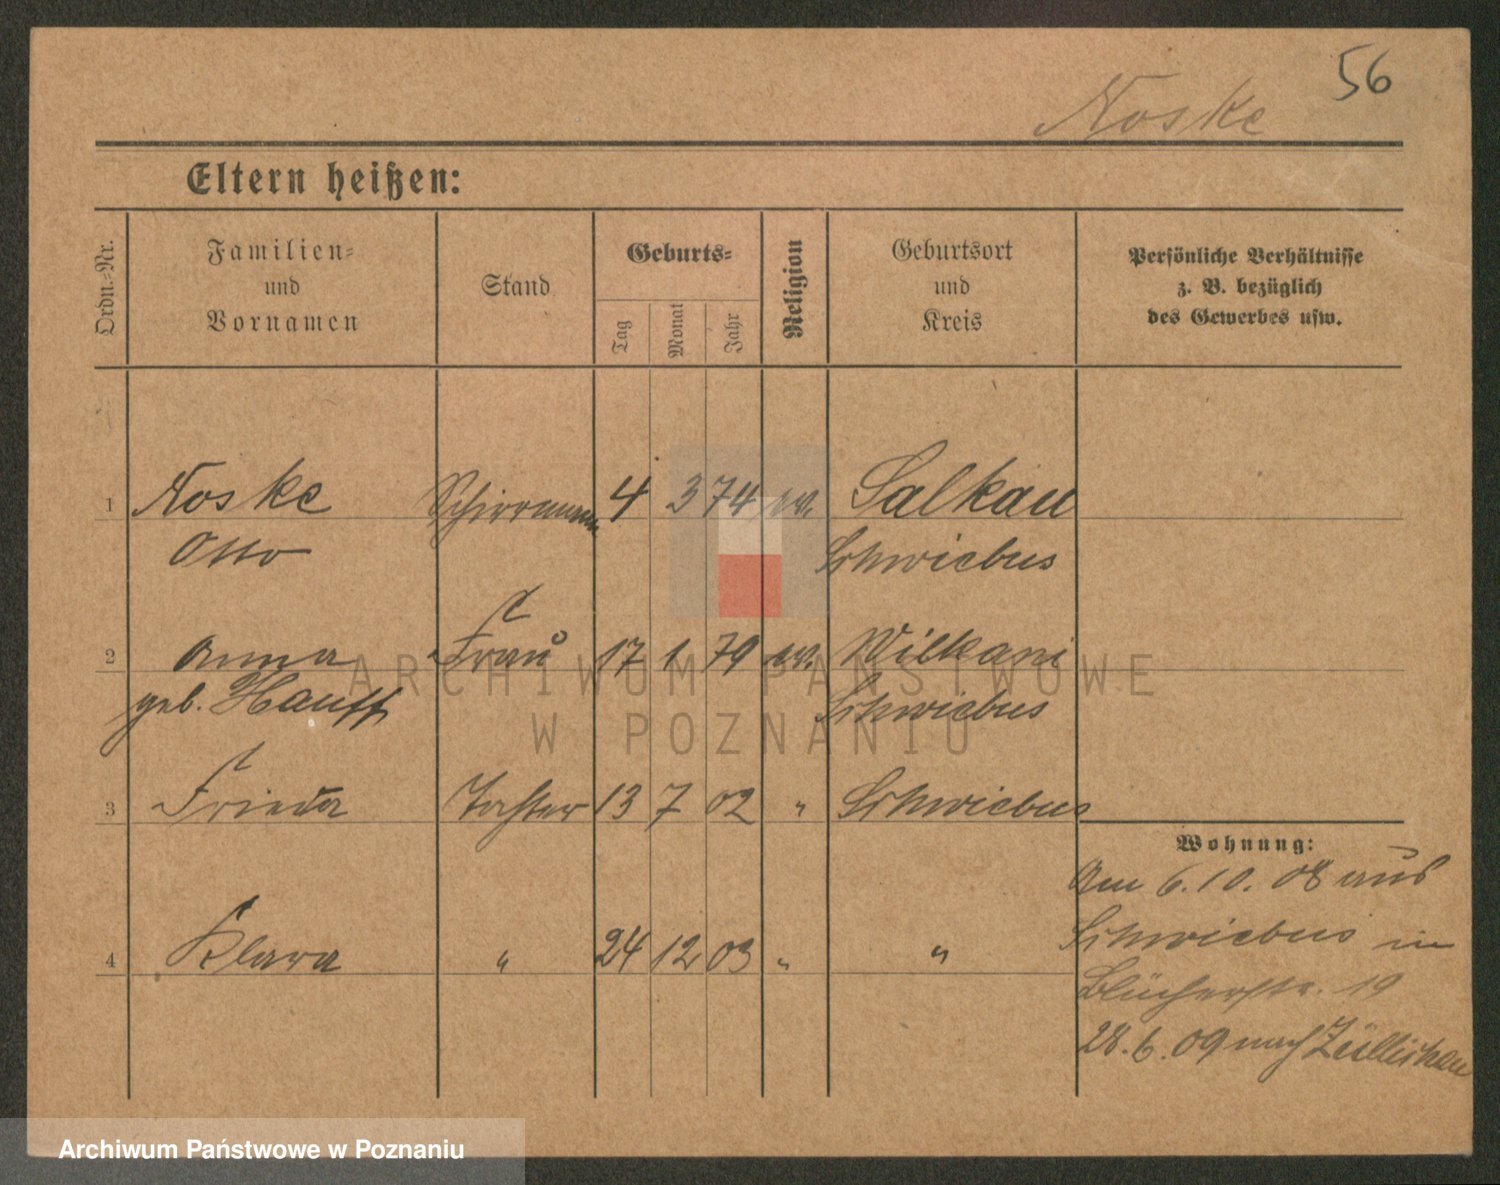 56
Noske
Eltern heißen:
Ordn.-Nr.
Familien- und Vornamen
Stand
Geburts-
Tag
Monat
Jahr
Religion
Geburtsort und Kreis
Persönliche Verhältnisse
z. B. bezüglich
des Gewerbes usw.
1 Noske Schirrmann 4 3 74 ev. Salkau
Otto Schwiebus
2 Anna Frau 17 1 79 ev. Wilkau
geb. Hauff Schwiebus
3 Frieda Tochter 13 7 02 " Schwiebus
4 Klara " 24 12 03 " "
Wohnung:
Am 6.10.08 aus
Schwiebus in
Blücherstr. 19
28.6.09 nach Züllichau
ARCHIWUM PAŃSTWOWE
W POZNANIU
Archiwum Państwowe w Poznaniu